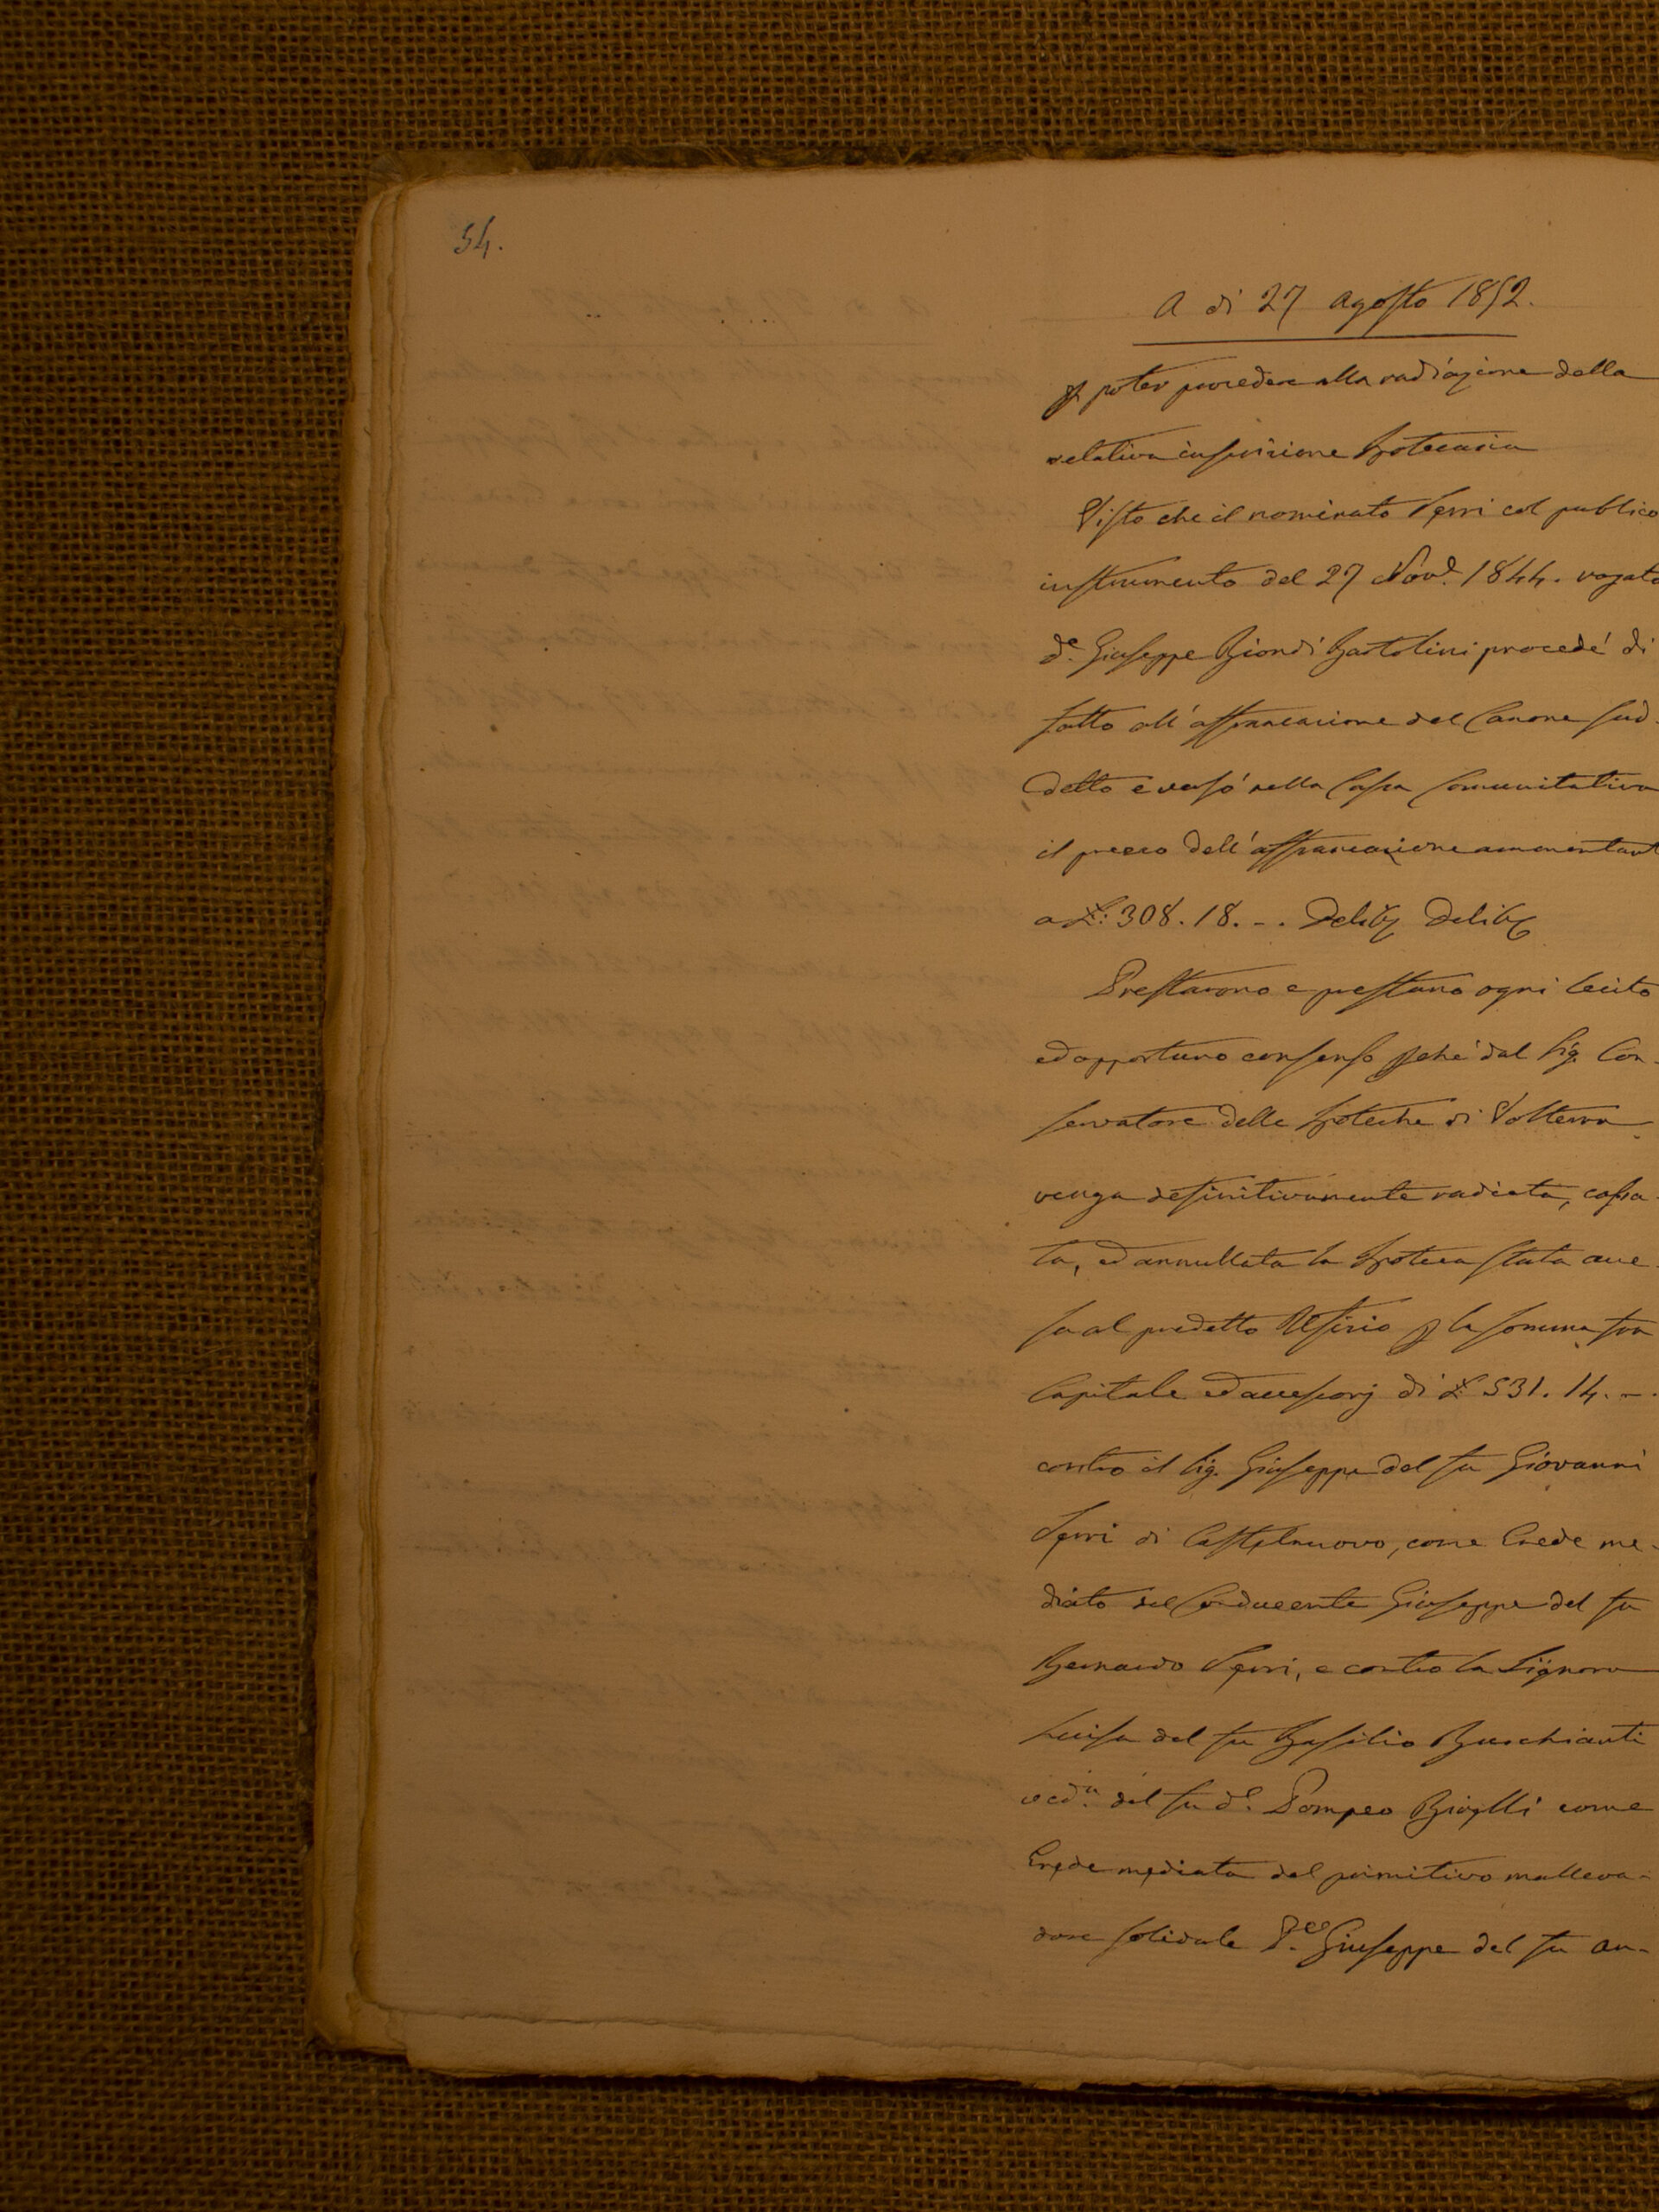 54.
A dì 27 Agosto 1852.
p poter procedere alla radiazione della
relativa inscrizione Ipotecaria
Visto che il nominato Serri col publico
instrumento del 27 Nov.e 1844. rogato
d.e Giuseppe Biondi Bartolini procedé di
fatto all'affrancazione del Canone sud-
detto e versó nella Cassa Comunitativa
il prezzo dell'affrancazione ammontant
a £: 308. 18. -. Delib Delib
Prestarono e prestano ogni lecito
ed opportuno consenso pché dal Sig. Con-
servatore delle Ipoteche di Volterra
venga definitivamente radiata, cassa-
ta, ed annullata la Ipoteca stata acce-
sa al predetto Ufizio p la somma fra
Capitale ed accessorj di £ 531. 14. -.
contro il Sig. Giuseppe del fu Giovanni
Serri di Castelnuovo, come Erede me-
diato del Conducente Giuseppe del fu
Bernardo Serri, e contro la Signora
Luisa del fu Basilio Bucchianti
ved.a del fu d.e Pompeo come
Erede mediata del primitivo malleva-
dore solidale Giuseppe del fu An-